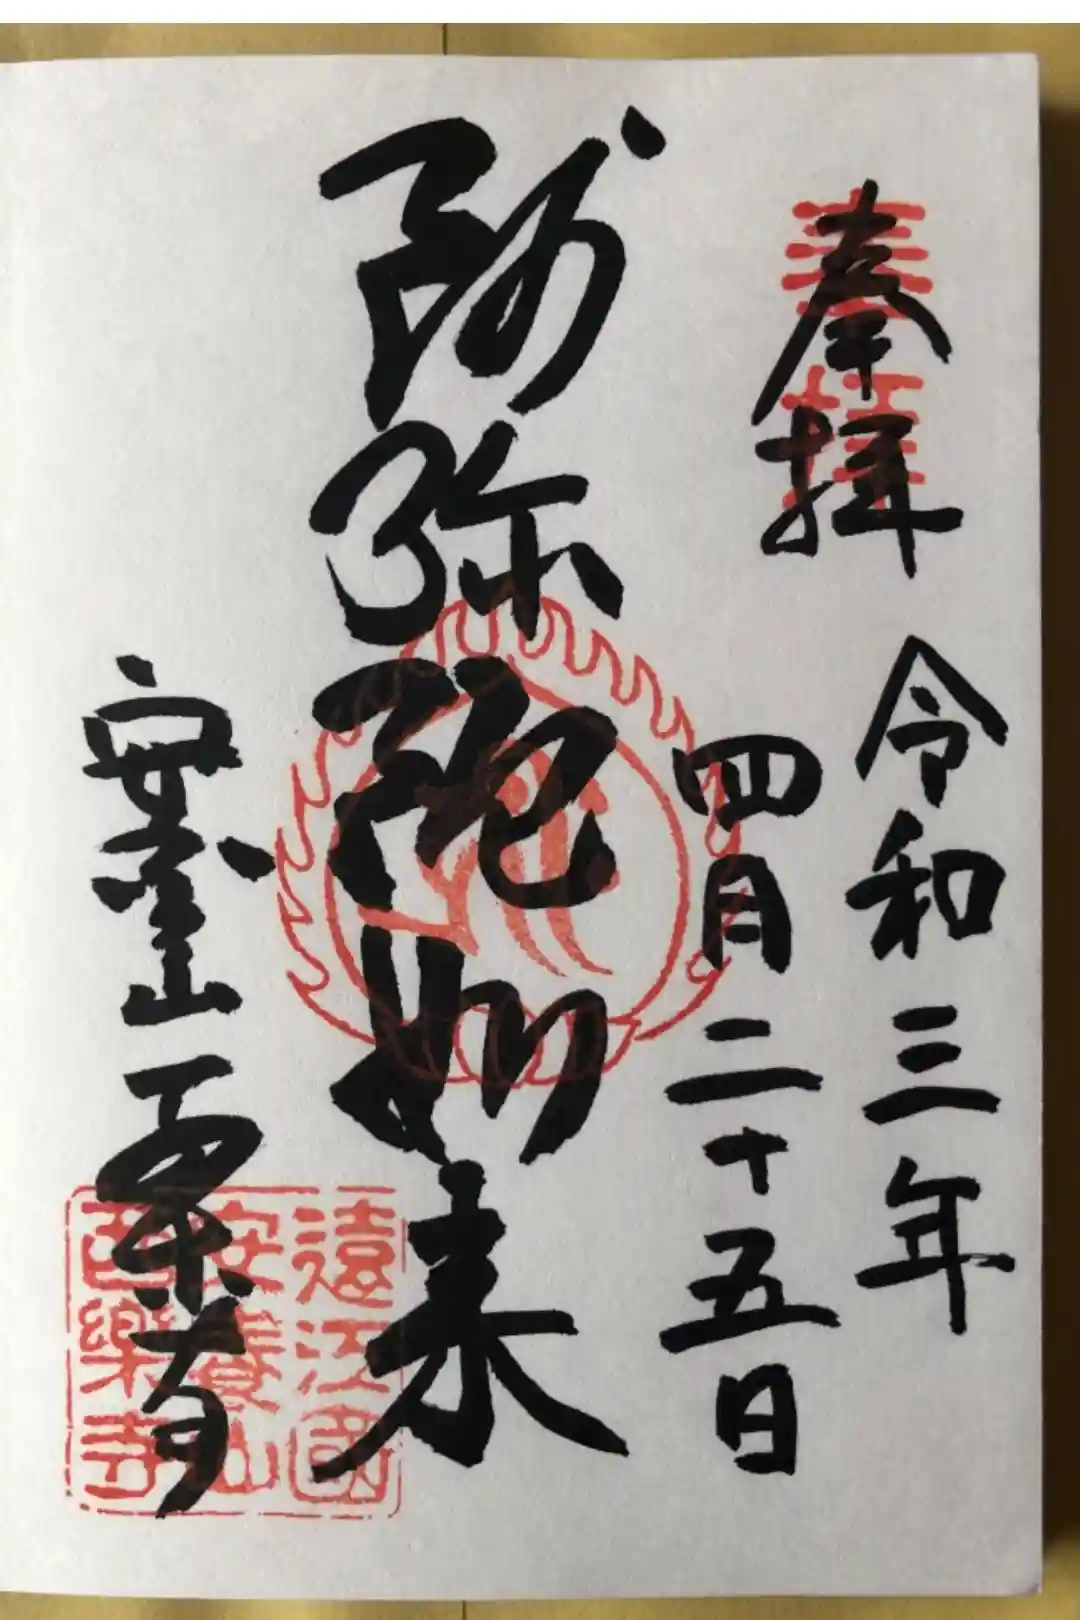 奉拝
奉拝
令和三年
四月二十五日
阿弥陀如来
安養山西楽寺
遠江國
安養山
西樂寺